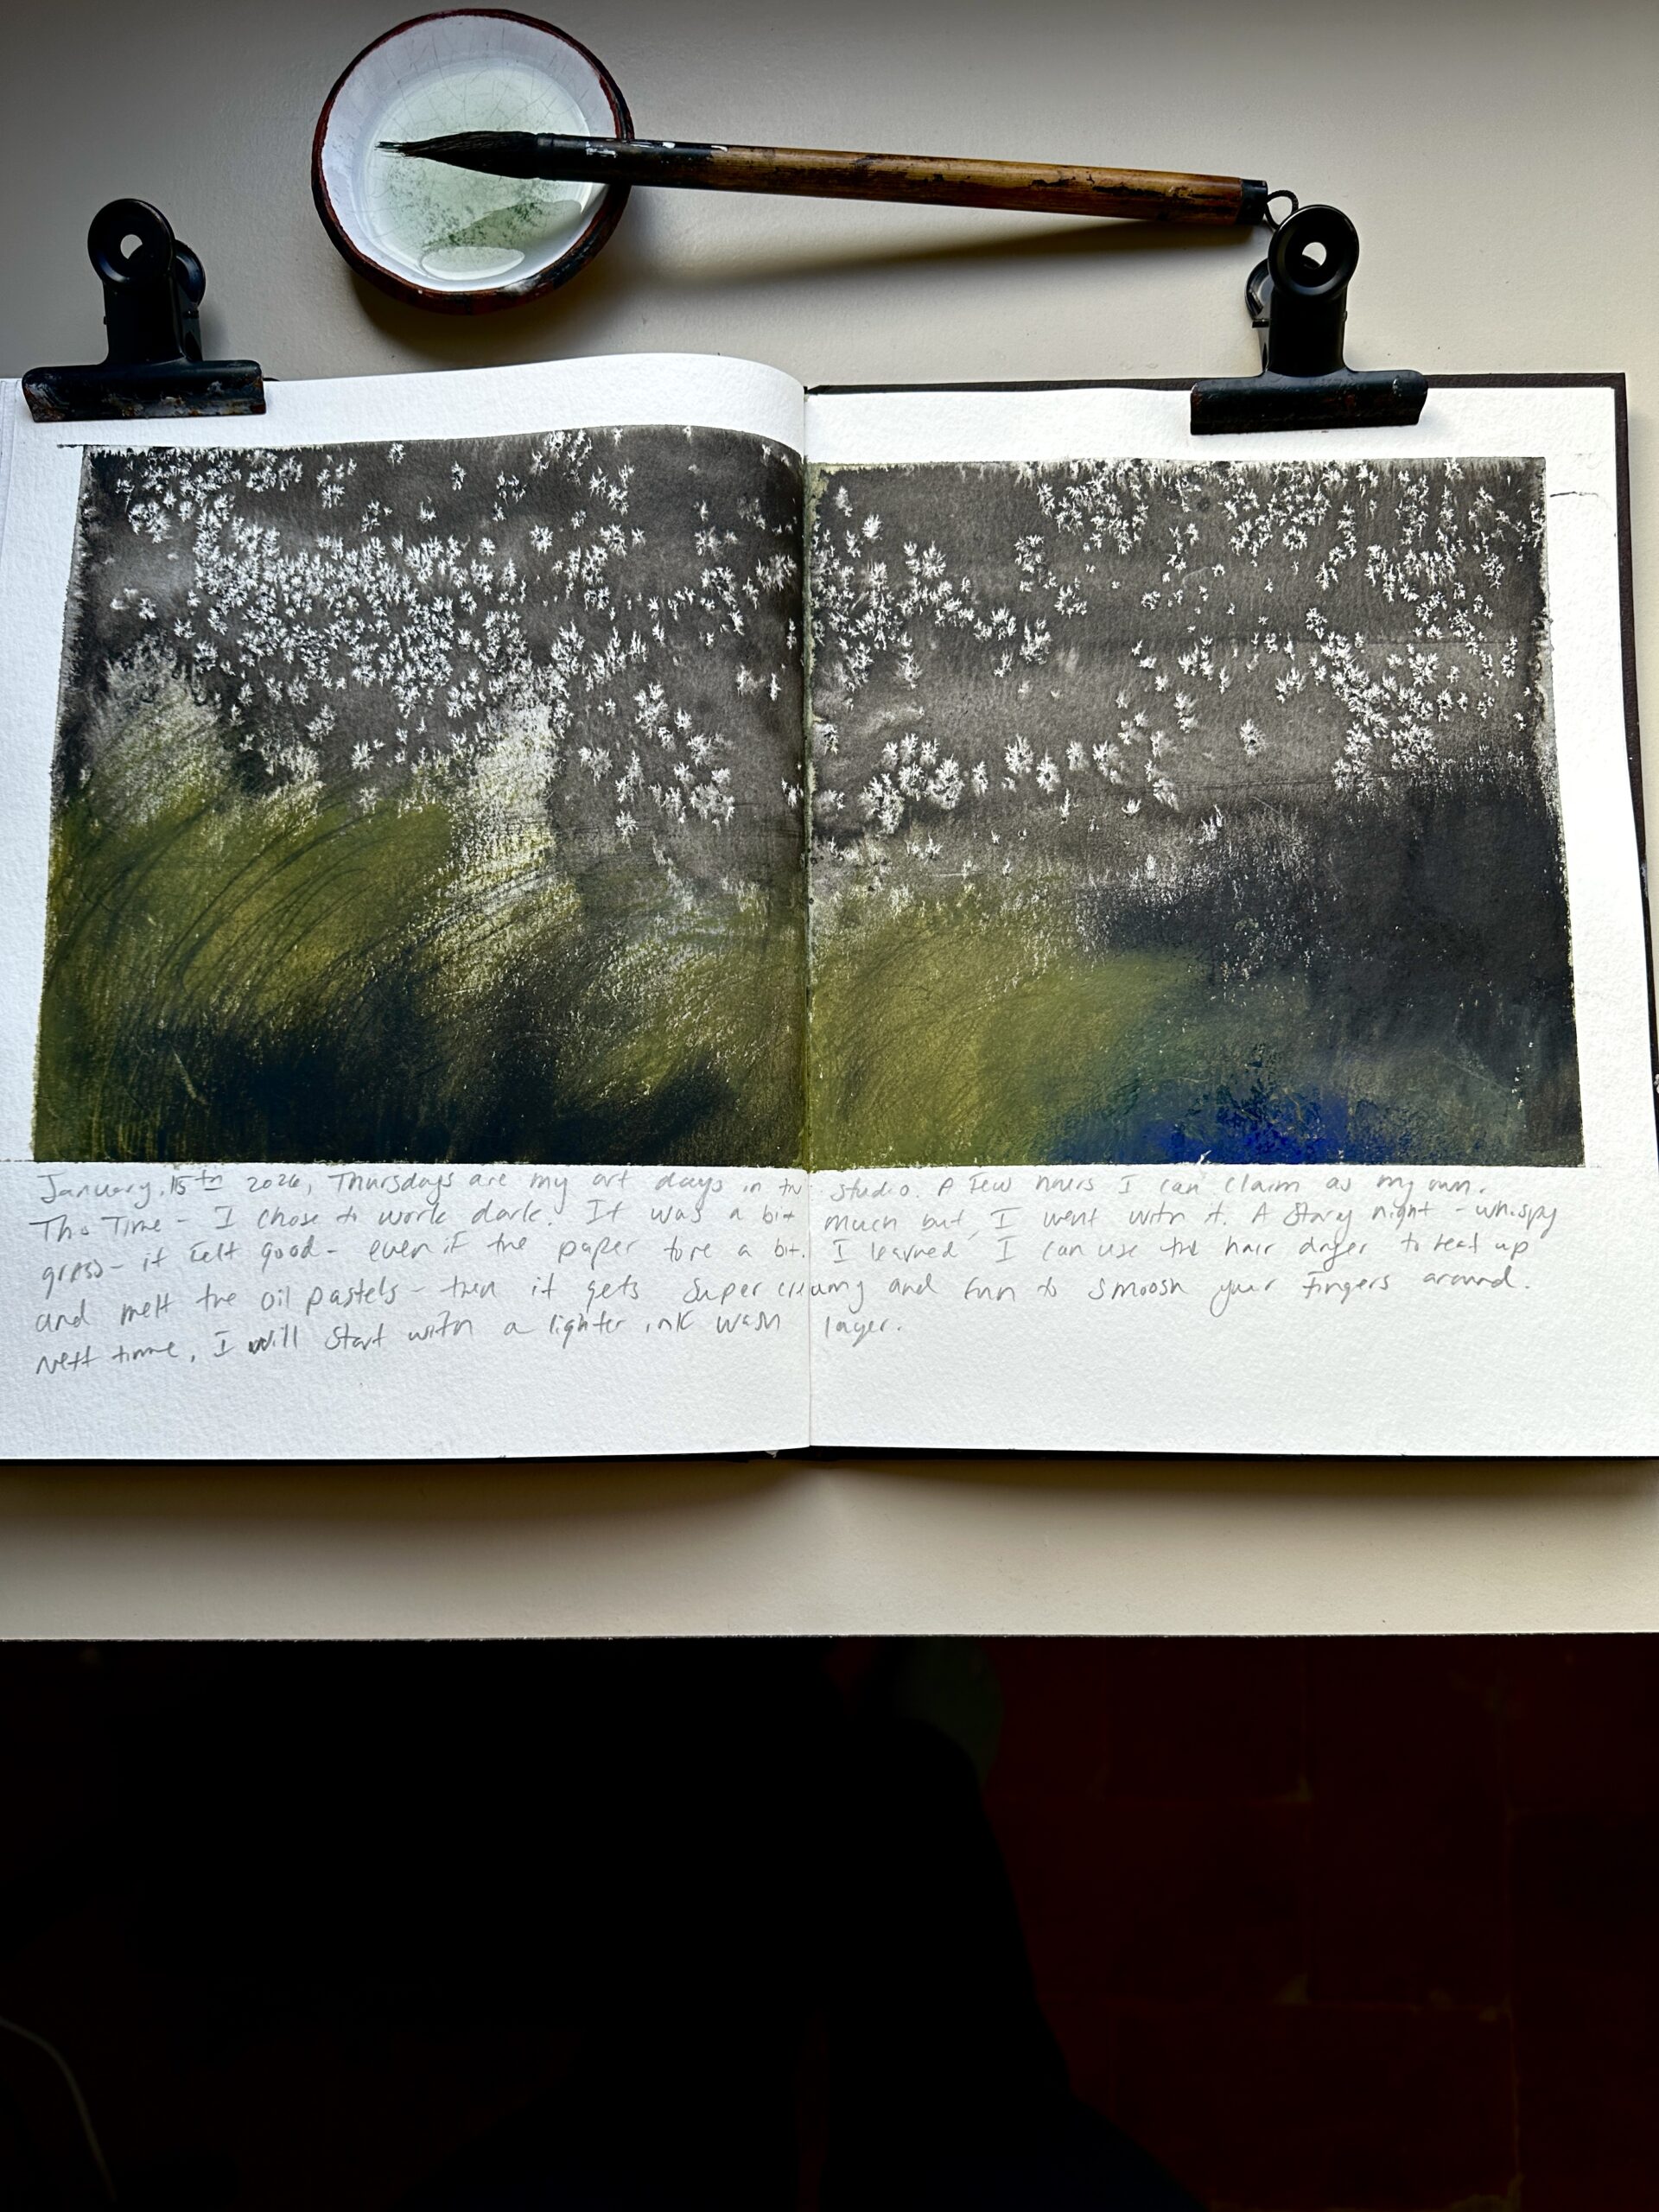 January, 15th 2026, Thursdays are my art days in the studio. A few hours I can claim as my own.
This Time - I chose to work dark. It was a bit much but, I went with it. A Stary night - whispy
grass - it felt good - even if the paper tore a bit. I learned, I can use the hair dryer to heat up
and melt the oil pastels - then it gets super creamy and fun to smoosh your fingers around.
Next time, I will start with a lighter ink wash layer.